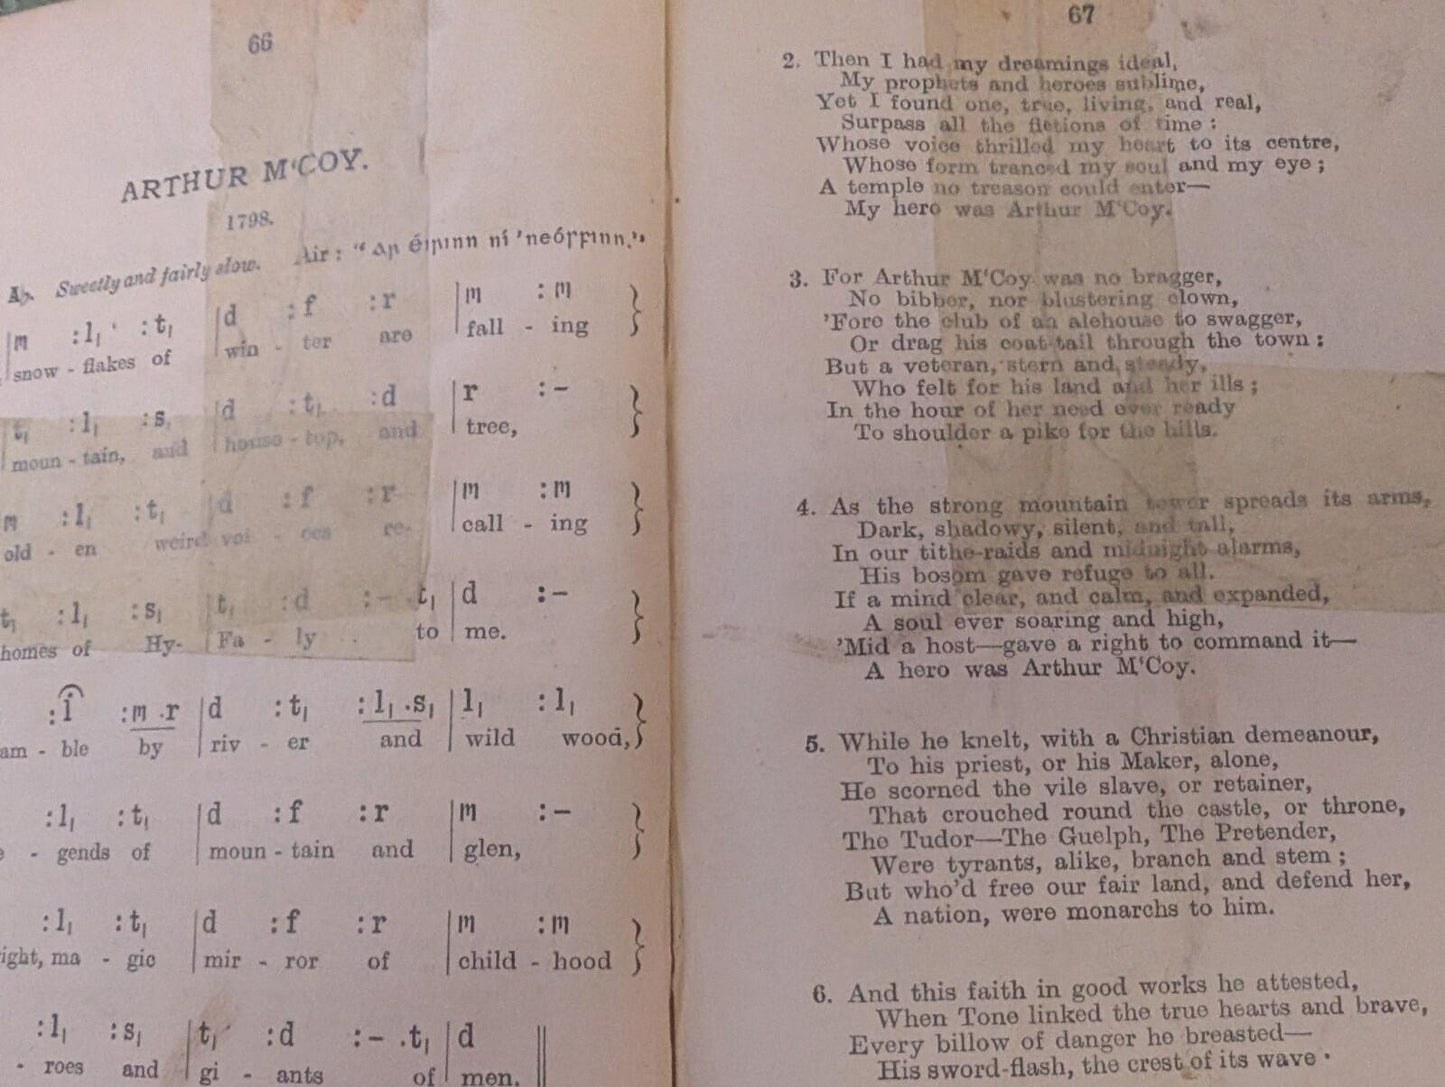 66
ARTHUR M‘COY.
1798.
A♭. Sweetly and fairly slow. Air: “an éirinn ní ’neósfainn.”
|m :l₁ :t₁ |d :f :r |m :m }
snow - flakes of win - ter are fall - ing
t₁ :l₁ :s₁ |d :t₁ :d |r :–
moun - tain, and house - top, and tree,
m :l₁ :t₁ |d :f :r |m :m }
old - en weird voi - ces re- call - ing
t₁ :l₁ :s₁ |t₁ :d :– .t₁ |d :– }
homes of Hy- Fa - ly to me.
:l :m .r |d :t₁ :l₁ .s₁ |l₁ :l₁ }
am - ble by riv - er and wild wood,
:l₁ :t₁ |d :f :r |m :– }
- gends of moun - tain and glen,
:l₁ :t₁ |d :f :r |m :m }
ight, ma - gic mir - ror of child - hood
:l₁ :s₁ |t₁ :d :– .t₁ |d ||
- roes and gi - ants of men.
67
2. Then I had my dreamings ideal,
My prophets and heroes sublime,
Yet I found one, true, living, and real,
Surpass all the fictions of time :
Whose voice thrilled my heart to its centre,
Whose form tranced my soul and my eye ;
A temple no treason could enter—
My hero was Arthur M‘Coy.
3. For Arthur M‘Coy was no bragger,
No bibber, nor blustering clown,
’Fore the club of an alehouse to swagger,
Or drag his coat-tail through the town ;
But a veteran, stern and steady,
Who felt for his land and her ills ;
In the hour of her need ever ready
To shoulder a pike for the hills.
4. As the strong mountain tower spreads its arms,
Dark, shadowy, silent, and tall,
In our tithe-raids and midnight alarms,
His bosom gave refuge to all.
If a mind clear, and calm, and expanded,
A soul ever soaring and high,
’Mid a host—gave a right to command it—
A hero was Arthur M‘Coy.
5. While he knelt, with a Christian demeanour,
To his priest, or his Maker, alone,
He scorned the vile slave, or retainer,
That crouched round the castle, or throne,
The Tudor—The Guelph, The Pretender,
Were tyrants, alike, branch and stem ;
But who’d free our fair land, and defend her,
A nation, were monarchs to him.
6. And this faith in good works he attested,
When Tone linked the true hearts and brave,
Every billow of danger he breasted—
His sword-flash, the crest of its wave